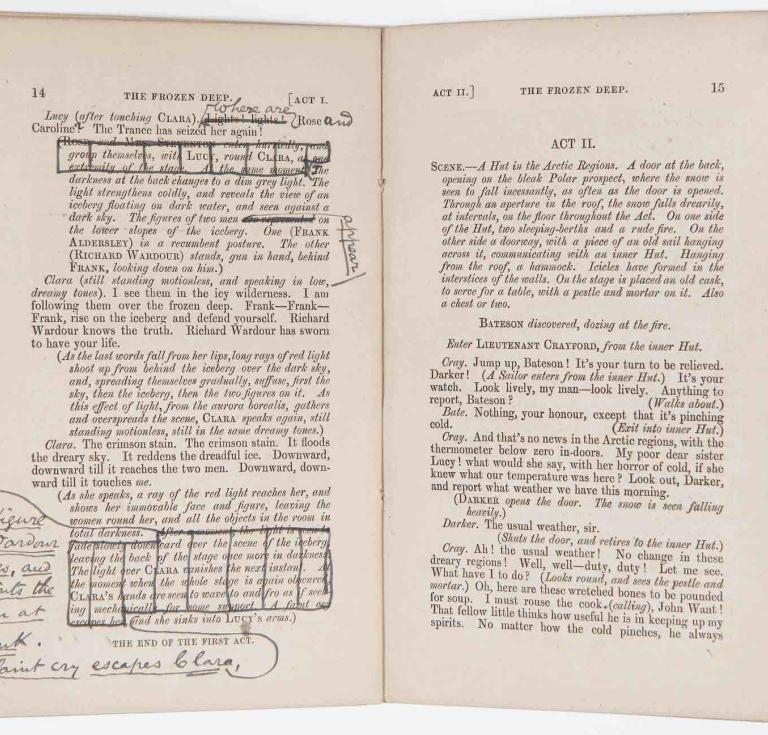 14 THE FROZEN DEEP. [ACT I.
where are
Lucy (after touching CLARA). Lights! lights! Rose and
Caroline? The Trance has seized her again!
(ROSE and MRS. STEVENTON enter hurriedly, and
group themselves, with LUCY, round CLARA, at one
extremity of the stage. At the same moment, the
darkness at the back changes to a dim grey light. The
light strengthens coldly, and reveals the view of an
iceberg floating on dark water, and seen against a
dark sky. The figures of two men are represented on
the lower slopes of the iceberg. One (FRANK
ALDERSLEY) in a recumbent posture. The other
(RICHARD WARDOUR) stands, gun in hand, behind
FRANK, looking down on him.)
appear
Clara (still standing motionless, and speaking in low,
dreamy tones). I see them in the icy wilderness. I am
following them over the frozen deep. Frank—Frank—
Frank, rise on the iceberg and defend yourself. Richard
Wardour knows the truth. Richard Wardour has sworn
to have your life.
(As the last words fall from her lips, long rays of red light
shoot up from behind the iceberg over the dark sky,
and, spreading themselves gradually, suffuse, first the
sky, then the iceberg, then the two figures on it. As
this effect of light, from the aurora borealis, gathers
and overspreads the scene, CLARA speaks again, still
standing motionless, still in the same dreamy tones.)
Clara. The crimson stain. The crimson stain. It floods
the dreary sky. It reddens the dreadful ice. Downward,
downward till it reaches the two men. Downward, down-
ward till it touches me.
(As she speaks, a ray of the red light reaches her, and
shows her immovable face and figure, leaving the
women round her, and all the objects in the room in
total darkness. After a moment, the light is seen to
fade slowly downward over the scene of the iceberg,
leaving the back of the stage once more in darkness.
The light over CLARA vanishes the next instant. At
the moment when the whole stage is again obscured,
CLARA's hands are seen to wave to and fro as if seek-
ing mechanically for some support. A faint cry
escapes her and she sinks into LUCY's arms.)
figure
Wardour
and
the
at
THE END OF THE FIRST ACT.
faint cry escapes Clara,
ACT II.] THE FROZEN DEEP. 15
ACT II.
SCENE.—A Hut in the Arctic Regions. A door at the back,
opening on the bleak Polar prospect, where the snow is
seen to fall incessantly, as often as the door is opened.
Through an aperture in the roof, the snow falls drearily,
at intervals, on the floor throughout the Act. On one side
of the Hut, two sleeping-berths and a rude fire. On the
other side a doorway, with a piece of an old sail hanging
across it, communicating with an inner Hut. Hanging
from the roof, a hammock. Icicles have formed in the
interstices of the walls. On the stage is placed an old cask,
to serve for a table, with a pestle and mortar on it. Also
a chest or two.
BATESON discovered, dozing at the fire.
Enter LIEUTENANT CRAYFORD, from the inner Hut.
Cray. Jump up, Bateson! It's your turn to be relieved.
Darker! (A Sailor enters from the inner Hut.) It's your
watch. Look lively, my man—look lively. Anything to
report, Bateson? (Walks about.)
Bate. Nothing, your honour, except that it's pinching
cold. (Exit into inner Hut.)
Cray. And that's no news in the Arctic regions, with the
thermometer below zero in-doors. My poor dear sister
Lucy! what would she say, with her horror of cold, if she
knew what our temperature was here? Look out, Darker,
and report what weather we have this morning.
(DARKER opens the door. The snow is seen falling
heavily.)
Darker. The usual weather, sir.
(Shuts the door, and retires to the inner Hut.)
Cray. Ah! the usual weather! No change in these
dreary regions! Well, well—duty, duty! Let me see.
What have I to do? (Looks round, and sees the pestle and
mortar.) Oh, here are these wretched bones to be pounded
for soup. I must rouse the cook. (calling), John Want!
That fellow little thinks how useful he is in keeping up my
spirits. No matter how the cold pinches, he always